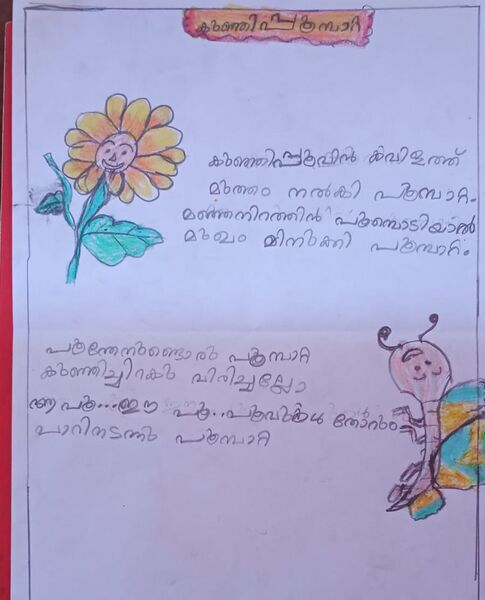 കുഞ്ഞിപ്പൂമ്പാറ്റ
കുഞ്ഞിപ്പൂവിൻ കവിളത്ത്
മുത്തം നൽകി പൂമ്പാറ്റ.
മഞ്ഞനിറത്തിൻ പൂമ്പൊടിയാൽ
മുഖം മിനുക്കി പൂമ്പാറ്റ.
പൂന്തേനുണ്ടൊരു പൂമ്പാറ്റ
കുഞ്ഞിച്ചിറകു വിരിച്ചല്ലോ
ആ പൂ...ഈ പൂ..പൂവുകൾ തോറും
പാറിനടന്നു പൂമ്പാറ്റ